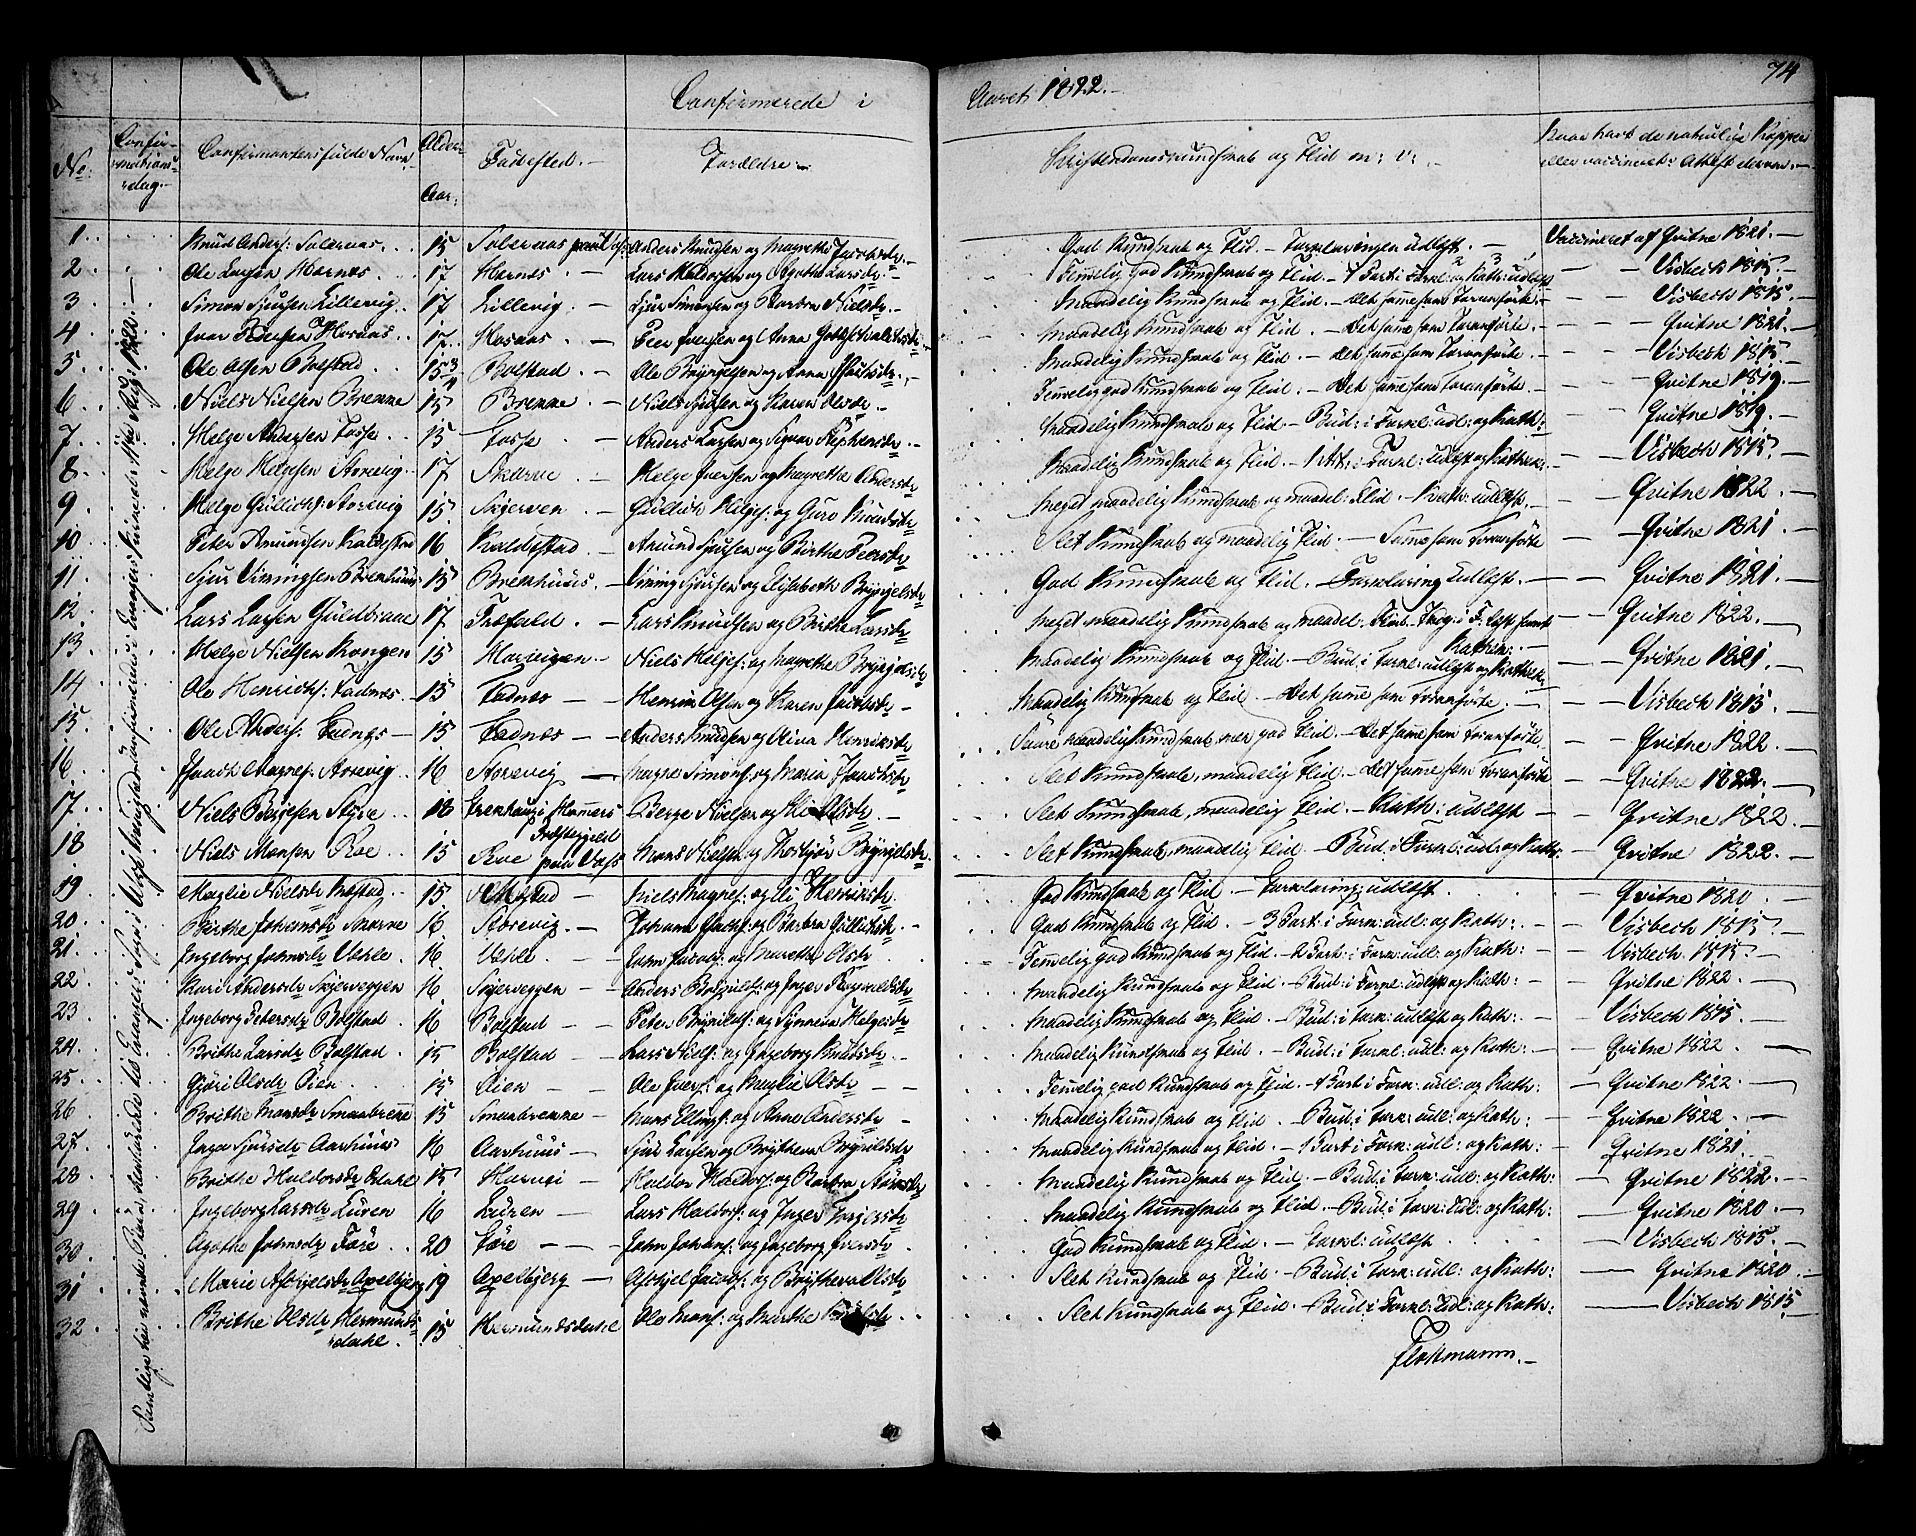 74
Confirmerede i Aaret 1822.-
No: Confir-mations-dag.- Confirmanternes fulde Navn Alder Aar: Födested.- Forældre.- Christendomskundskab og Flid m: v:.- Naar havt de naturlige Kopper eller vaccineret: Attest derom.-
1. Knud Anders: Solernas 15 Solernas Anders Knudsen og Magrethe Jacobsdr.- God Kundskab og Flid.- Forklaringen udlæst.- Vaccineret af Qvitne 1821.-
2. Ole Larsen Hærnes 17 Hærnes.- Lars Haldorsen og Agatha Larsdr.- Temelig god Kundskab og Flid.- 1 Part: i Forkl: og Kath: udlæst Visbech 1815.-
3 Simon Sjursen Lillevig 17 Lillevig.- Sjur Simonsen og Barbra Nielsdr.- Maadelig Kundskab og Flid.- Det same som Foranförte.- Visbech 1815.-
4 Ivar Pedersen Hosaas 17 Hosaas.- Peer Iversen og Anna Maadelig Kundskab og Flid.- Det same som Foranförte.- Qvitne 1821.
5. Ole Olsen Bolstad 15 3/4 Bolstad.- Ole Bryngelsen og Anna Maadelig Kundskab og Flid.- Det same som Foranförte.- Visbech 1815.
6 Niels Nielsen Bremne 15 Bremne.- Niels Sjursen og Karen Olsdr.- Temelig god Kundskab og Flid.- Det same som Foranförte.- Qvitne 1819.-
7. Helge Andersen Fosse 15 Fosse.- Anders Larsen og Signa Stephensdr.- Maadelig Kundskab og Flid.- Bud: i Forkl: udl: og Kath: Qvitne 1819.
8. Helge Helgesen Storevig 17 Skarve.- Helge Iversen og Magrethe Andersdr Maadelig Kundskab og Flid.- i Forkl: udlæst og Kathek: Visbech 1815.
9 Helge Gullichs: Storevig 15. Skjerven.- Gullich Helges: og Guro Knudsdr Meget maadelig Kundskab og maadel: Flid.- Kath: udlæst.- Qvitne 1822.
10 Peter Amundsen Kaldestad 16 Kaldestad.- Amund Sjursen og Birthe Peersdr Slet Kundskab og maadelig Flid.- Same som Foranförte Qvitne 1821.
11. Sjur Viningsen Brenhuus 15 Brenhuus.- Vining Sjursen og Elisabeth Bryngelsdr God Kundskab og Flid. Forklaring udlæst.- Qvitne 1821.
12. Lars Larsen Guldbrane 17 Træfald.- Lars Knudsen og Birthe Larsdr Meget maadelig Kundskab og maadel: Flid. Kathek: Qvitne 1822.
13 Helge Nielsen Kongen 15 Horvigen.- Niels Helges: og Magrethe Bryngelsdr Maadelig Kundskab og Flid.- Bud: i Forkl: udlæst og Kathek: Qvitne 1821.
14 Ole Henrichs: Fadnes 15 Fadnes.- Henrich Olsen og Karen Jacobsdr.- Maadelig Kundskab og Flid.- Det same som Foranförte.- Visbech 1815.
15. Ole Anders: Fadnes 15 Fadnes.- Anders Knudsen og Olina Henriksdr Saare maadelig Kundskab, men god Flid.- Det same som Foranförte. Qvitne 1822
16 Isach Magnes: Storevig 16 Storevig.- Magne Simons: og Maria Isachsdr Slet Kundskab, maadelig Flid.- Det same som Foranförte Qvitne 1822.
17. Niels Bergesen Styve 18 i Hammers Præstegjeld Berge Nielsen og Eli Olsdr.- Slet Kundskab, maadelig Flid.- Kath: udlæst.- Qvitne 1822.
18 Niels Monsen Roe 15 Roe paa Vos Mons Nielsen og Thorbjör Bryngelsdr. Slet Kundskab, maadelig Flid.- Bud: i Forkl: udl: og Kath: Qvitne 1822.
19. Maglie Nielsdr Mæstad 15. Mæstad.- Niels Magnes: og Eli Henriksdr. God Kundskab og Flid.- Forklaring: udlæst. Qvitne 1820.
20. Birthe Johansdr Skarve 16 Storevig.- Johann Isachs: og Barbra Gullichsdr.- God Kundskab og Flid.- 3 Part: i Forkl: udl: og Kath:.- Visbech 1815.
21. Ingeborg Johnsdr Vehle 16 Vehle.- John Jacobs: og Marethe Olsdr Temelig god Kundskab og Flid.- 2 Part: i Forkl: udl: og Kath: Visbech 1815.
22. Kari Andersdr Skjerveggen 16 Skjerveggen Anders Bryngels: og Inger Ragnaldsdr Maadelig Kundskab og Flid. Bud: i Forkl: udlæst og Kath: Qvitne 1822.
23. Ingeborg Petersdr Bolstad. 16 Bolstad.- Peter Brynilds: og Synneva Helgesdr Maadelig Kundskab og Flid. Bud: i Forkl: udlæst og Kath: Visbech 1815.
24. Brithe Larsdr Bolstad. 15 Bolstad.- Lars Niels: og Ingeborg Knudsdr.- Maadelig Kundskab og Flid.- Bud: i Forkl: udl: og Kath: Qvitne 1822.
25 Gjöri Olsdr Öien 15. Öien.- Ole Ivers: og Maglie Olsdr.- Temelig god Kundskab og Flid.- 1 Part: i Forkl: udl: og Kath: Qvitne 1822.
26 Brithe Monsdr Smaabrenne 15 Smaabrenne.- Mons Ellings: og Anne Andersdr.- Maadelig Kundskab og Flid. Bud: i Forkl: udl: og Kath: Qvitne 1822.
27. Inga Sjursdr Aarhuus 16 Aarhuus.- Sjur Larsen og Brythera Brynildsdr Maadelig Kundskab og Flid.- 1 Part: i Forkl: udl: og Kath: Qvitne 1821.
28. Brithe Haldorsdr Dahl 15 Horvei Haldor Haldors: og Barbra Maadelig Kundskab og Flid.- Bud: i Forkl: udl: og Kath: Qvitne 1822.
29. Ingeborg Larsdr Luren 16 Luren.- Lars Haldors: og Inger Torgersdr Maadelig Kundskab og Flid.- Bud: i Forkl: udl: og Kath: Qvitne 1820.
30. Agathe Johnsdr Före 20 Före.- John Johans: og Ingeborg Iversdr God Kundskab og Flid.- Forkl: udlæst Visbech 1815.
31. Marie Askjelsdr Apelbjerg 19 Apelbjerg.- Askjel Jacobs: og Brythera Olsdr Slet Kundskab og Flid.- Bud: i Forkl: udl: og Kath: Qvitne 1820.
32. Brithe Olsdr Hermundsdahl. 15 Hermundsdahl Ole Mons: og Marthe Slet Kundskab og Flid.- Bud: i Forkl: udl: og Kath: Visbech 1815
Flottmann.-